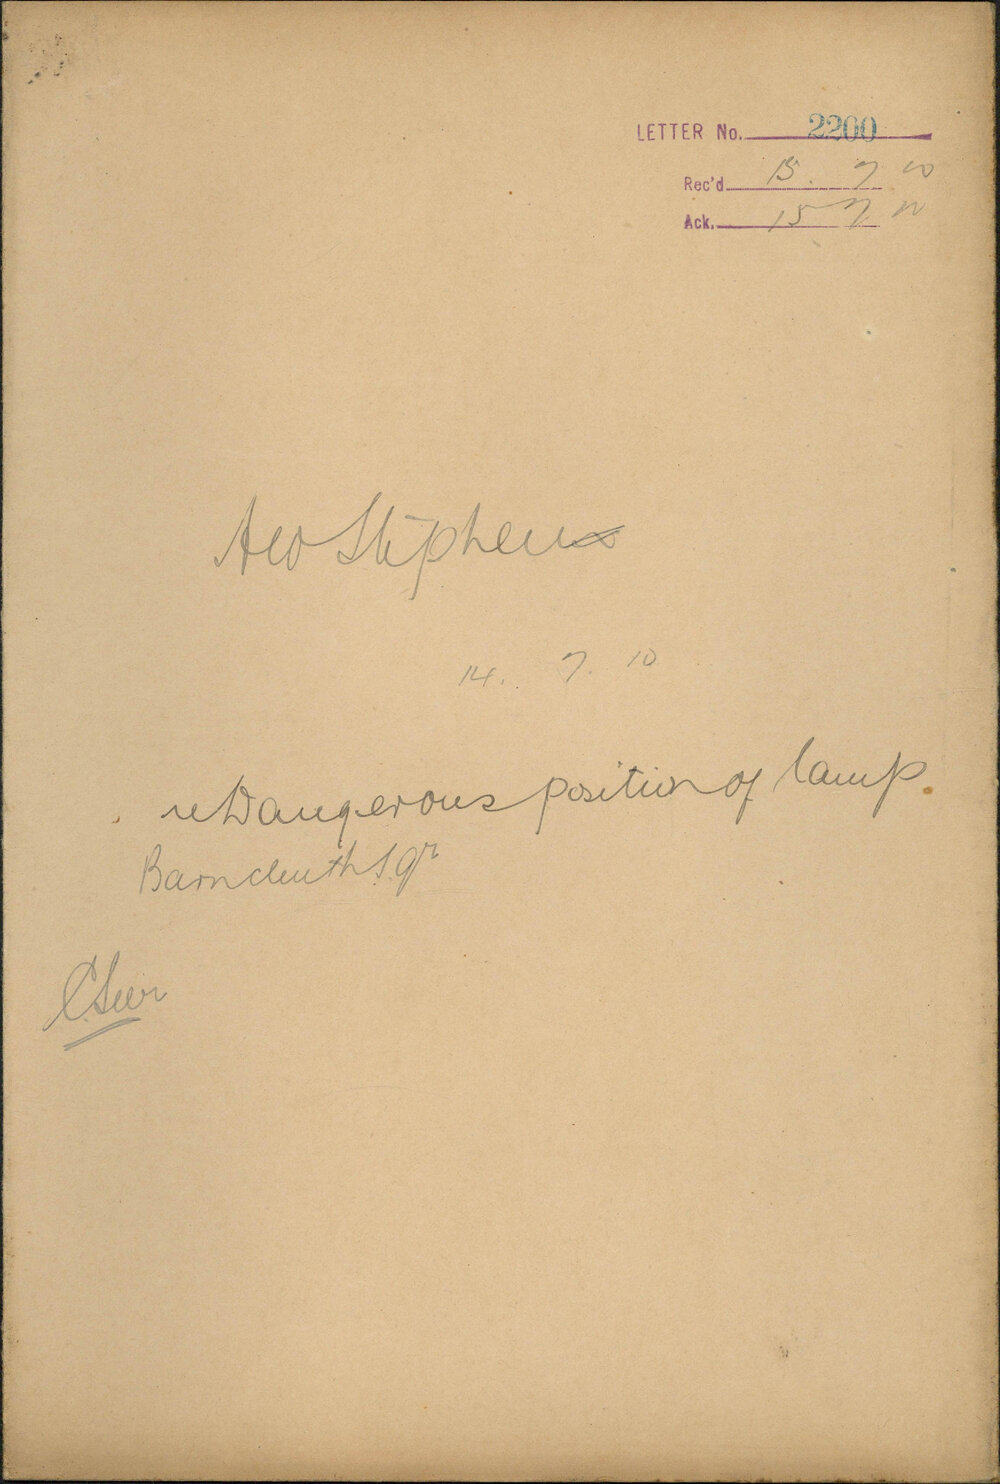 LETTER No. 2200
Rec'd 15. 7 10
Ack. 15 7 10
Geo Stephens
14. 7. 10
re Dangerous position of lamp.
Barncleuth Sqr